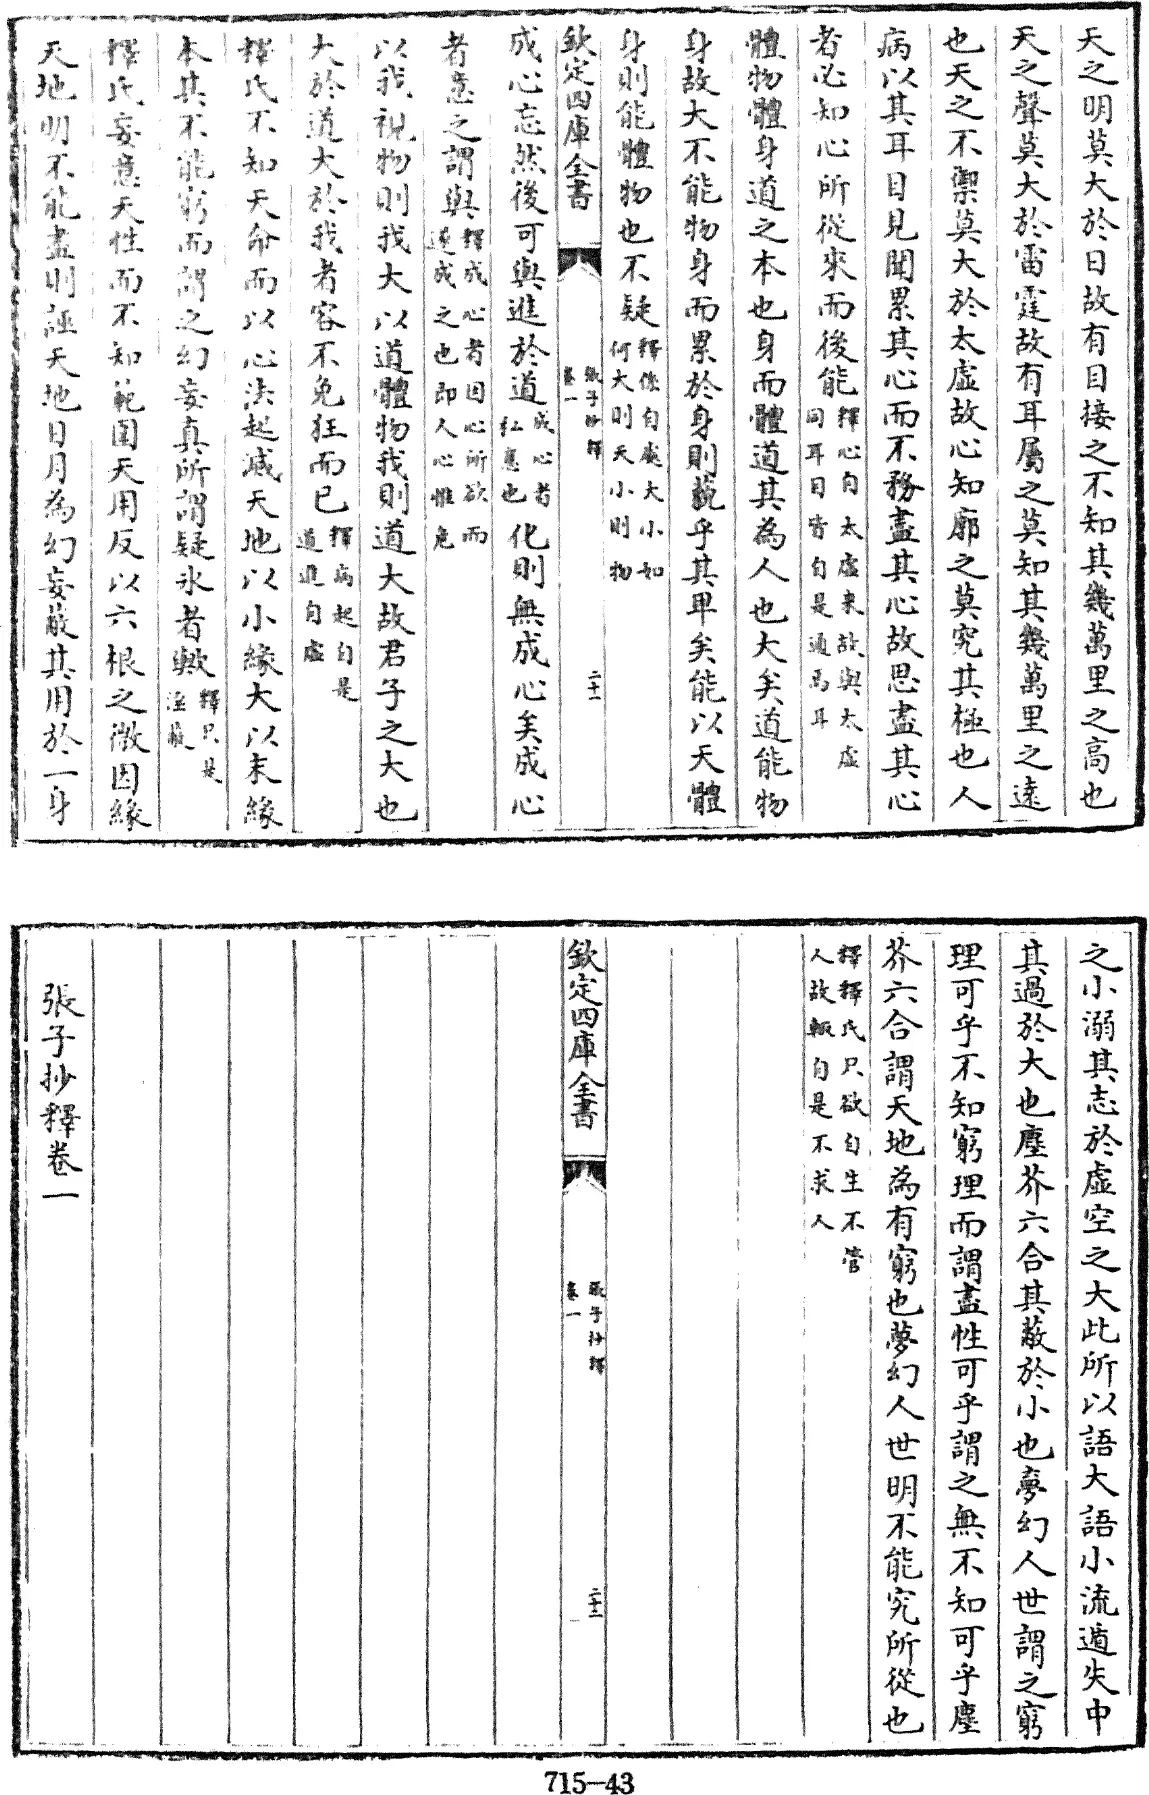 天之明莫大於日故有目接之不知其幾萬里之高也
天之聲莫大於雷霆故有耳屬之莫知其幾萬里之遠
也天之不禦莫大於太虛故心知廓之莫究其極也人
病以其耳目見聞累其心而不務盡其心故思盡其心
者必知心所從來而後能
釋心自太虛來故與太虛
同耳目皆自是通焉耳
體物體身道之本也身而體道其為人也大矣道能物
身故大不能物身而累於身則藐乎其卑矣能以天體
身則能體物也不疑
釋像自處大小如
何大則天小則物
欽定四庫全書
張子抄釋
卷一
二十一
成心忘然後可與進於道
成心者
私意也
化則無成心矣成心
者意之謂與
釋成心者因心所欲而
遂成之也即人心惟危
以我視物則我大以道體物我則道大故君子之大也
大於道大於我者容不免狂而已
釋病起自是
道進自虛
釋氏不知天命而以心法起滅天地以小緣大以末緣
本其不能窮而謂之幻妄真所謂疑氷者歟
釋只是
淫蔽
釋氏妄意天性而不知範圍天用反以六根之微因緣
天地明不能盡則誣天地日月為幻妄蔽其用於一身
之小溺其志於虛空之大此所以語大語小流遁失中
其過於大也塵芥六合其蔽於小也夢幻人世謂之窮
理可乎不知窮理而謂盡性可乎謂之無不知可乎塵
芥六合謂天地為有窮也夢幻人世明不能究所從也
釋釋氏只欲自生不管
人故輒自是不求人
欽定四庫全書
張子抄釋
卷一
二十二
張子抄釋卷一
715-43